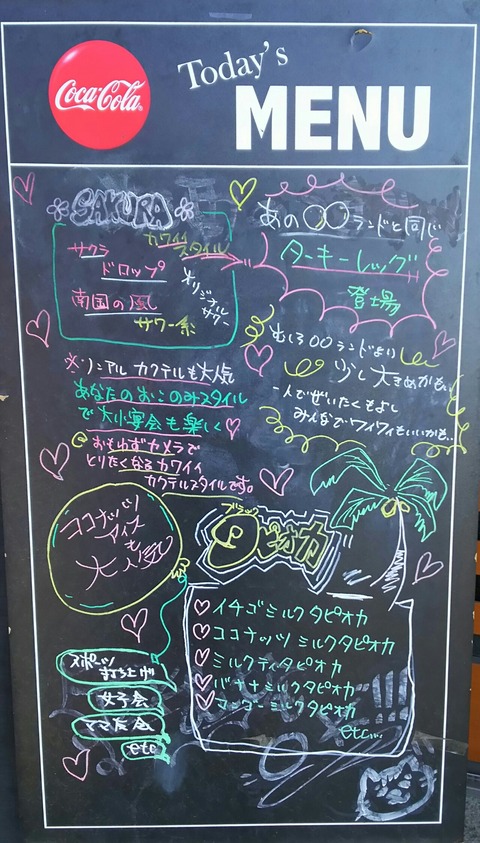 Coca-Cola
Today's
MENU
SAKURA
カワイイ
スタイル
サクラ
ドロップ
オリジナル
サワー
南国の風
サワー系
あの〇〇ランドと同じ
ターキーレッグ
登場
むしろ〇〇ランドより
少し大きめかも。
一人でぜいたくもよし
みんなでワイワイもいいかも。
※ノンアルカクテルも大人気
あなたのおこのみスタイル
で大小宴会も楽しく
@おもわずカメラで
とりたくなるカワイイ
カクテルスタイルです。
ココナッツ
アイス
も
大人気
ブラック
タピオカ
イチゴミルクタピオカ
ココナッツミルクタピオカ
ミルクティタピオカ
バナナミルクタピオカ
マンゴーミルクタピオカ
etc...
スポーツ
打ち上げ
女子会
ママ友会
etc